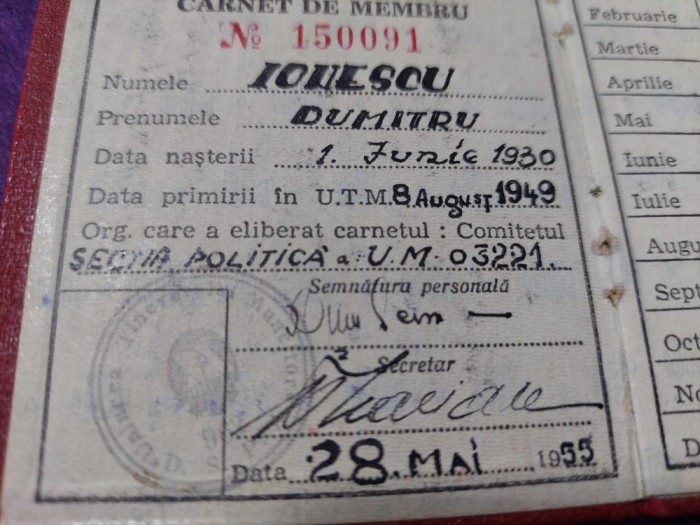 CARNET DE MEMBRU
№ 150091
Numele IONESCU
Prenumele DUMITRU
Data nașterii 1. Iunie 1930
Data primirii în U.T.M. 8 August 1949
Org. care a eliberat carnetul : Comitetul
SECȚIA POLITICĂ a U.M. 03221.
Semnătura personală
Secretar
Data 28. MAI 1955
Uniunea Tineretului Munc
Februarie
Martie
Aprilie
Mai
Iunie
Iulie
Augu
Sept
Oct
No
D